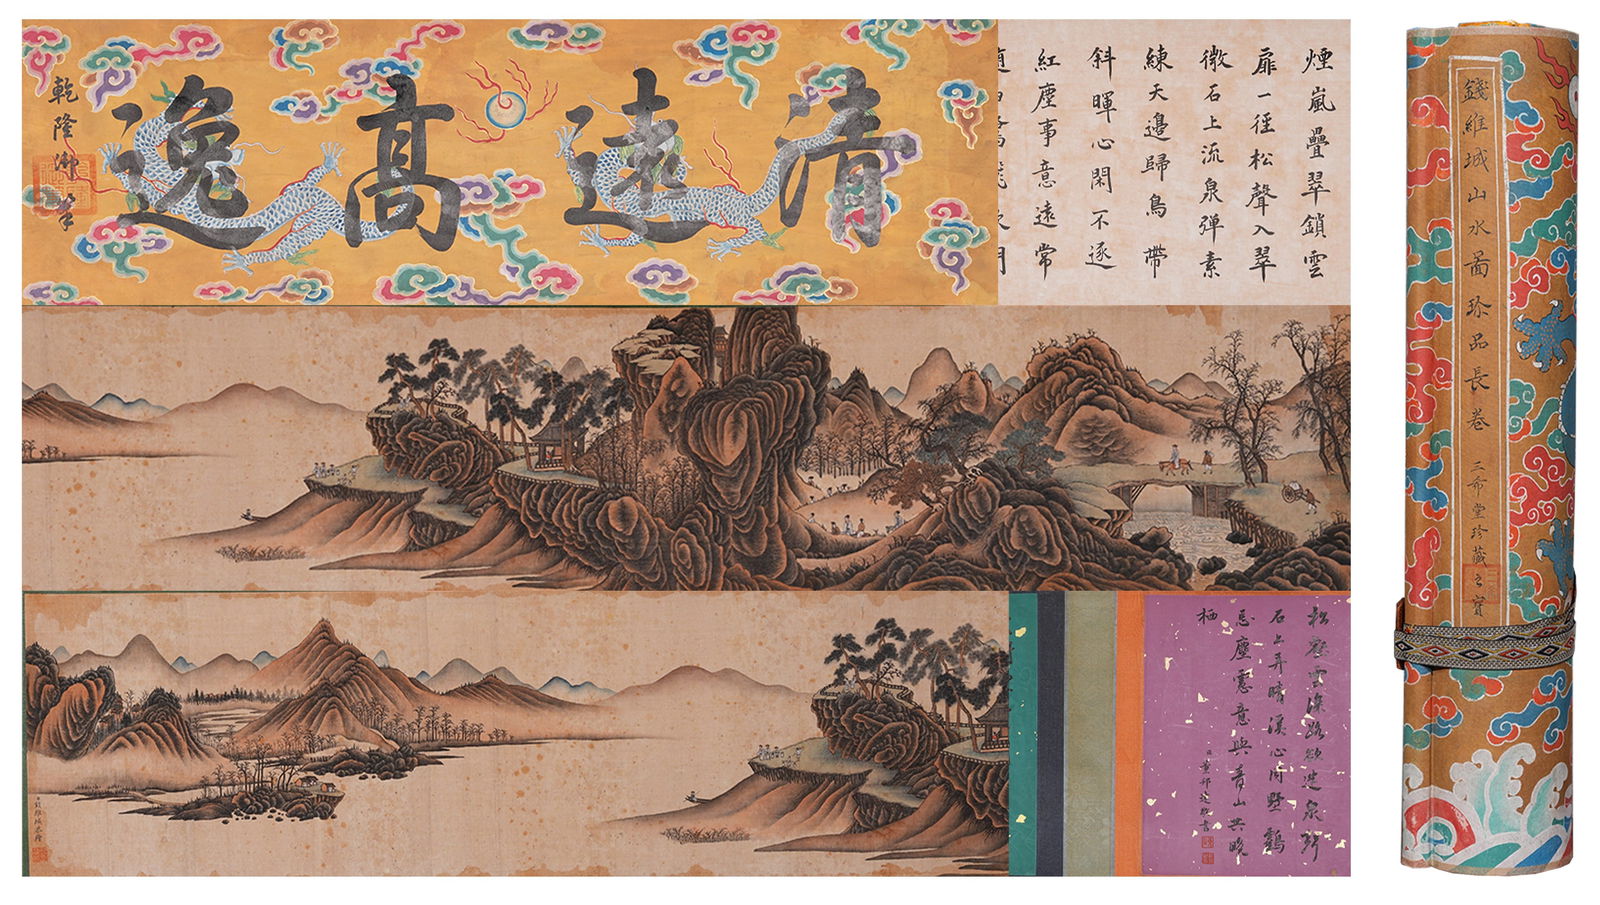 清遠高逸
乾隆御筆
煙嵐疊翠鎖雲
扉一徑松聲入翠
微石上流泉彈素
練天邊歸鳥帶
斜暉心閑不逐
紅塵事意遠常
松壑雲深路欲迷泉聲
石上弄晴溪心閑野鶴
忘塵慮意與青山共晚
栖
臣董邦達敬書
臣錢維城恭繪
錢維城山水圖珍品長卷
三希堂珍藏之寶